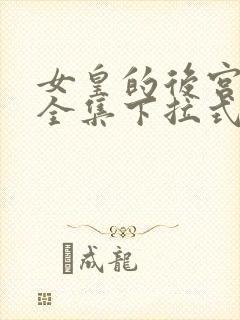 女皇的後宮
全集下拉式
成龍